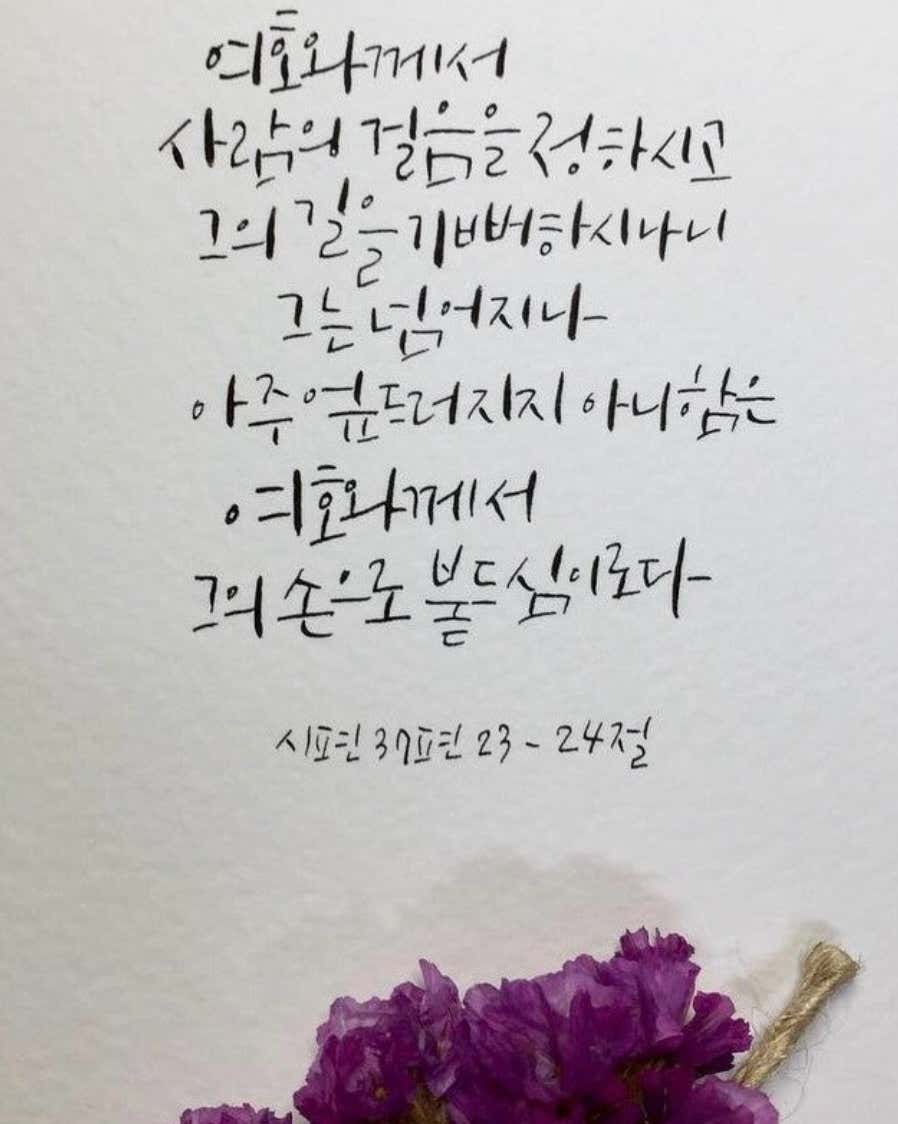 여호와께서
사람의 걸음을 정하시고
그의 길을 기뻐하시나니
그는 넘어지나
아주 엎드러지지 아니함은
여호와께서
그의 손으로 붙드심이로다
시편 37편 23 - 24절